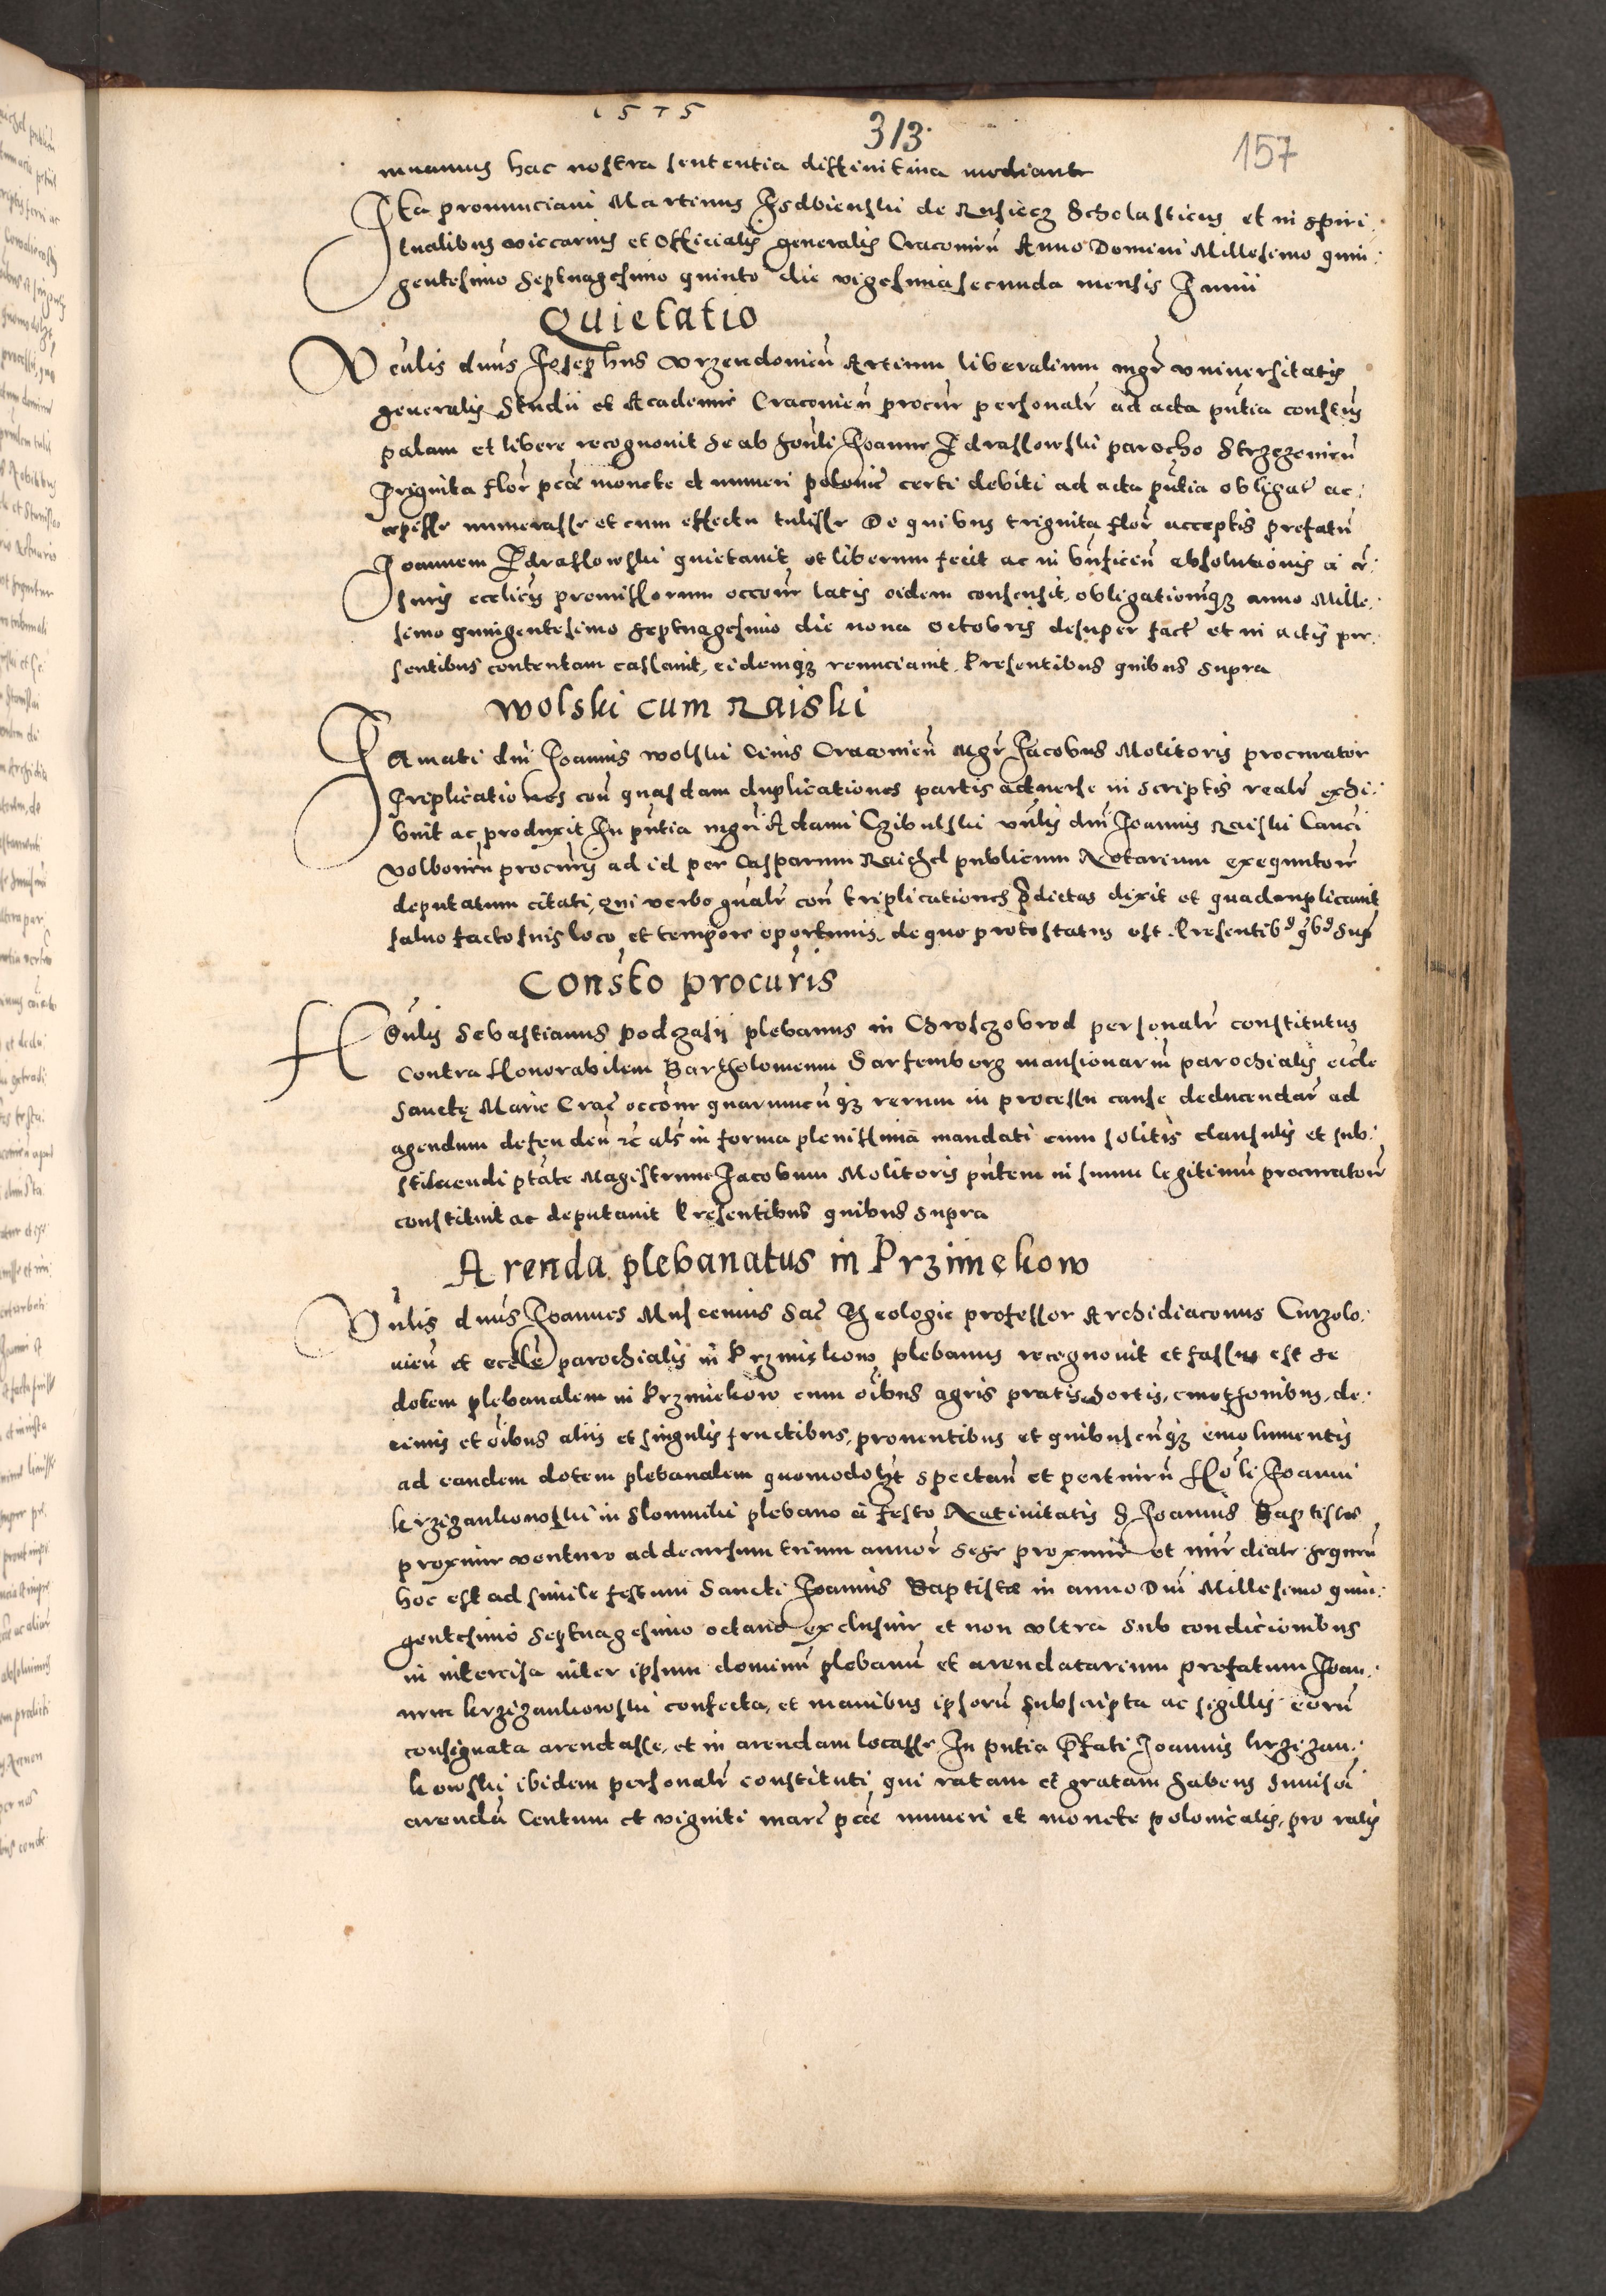 1575
313
157
muamus hac nostra sententia diffinitiva mediante
Ita pronunciavi Martinus Isdbienski de Rusiecz Scholasticus et in spiri:
tualibus viccarius et officialis generalis Cracovien̄ Anno Domini Millesimo quin:
gentesimo Septuagesimo quinto die vigesima secunda mensis Junii
Quietatio
Vn̄lis dnūs Josephus Vrzendovien̄ Artium liberalium mgr̄ vniversitatis
generalis Studii et Academie Cracovien̄ procūr personalr̄ ad acta pn̄tia constūs
palam et libere recognovit se ab honli Joanne Idraslowski parocho Strzezovien̄
Triginta flor̄ pccē monete et numeri polonic̄ certi debiti ad acta pn̄tia obligat̄ ac:
cepisse numerasse et cum effectu tulisse De quibus triginta flor̄ acceptis prefatū
Joannem Idraslowski quietavit et liberum fecit ac in bn̄ficiū absolutionis a cē:
suris ecclīcis premissorum occōne latis eidem consensit, obligationēqȝ anno Mille:
simo quingentesimo septuagesimo die nona octobris desuper fact̄ et in actis pre:
sentibus contentam cassavit, eidemqȝ renunciavit. Presentibus quibus supra
Wolski cum Raiski
Famati dnī Joannis Wolski Civis Cracovien̄ Mgr̄ Jacobus Molitoris procurator
Triplicationes con̄ quasdam duplicationes partis adverse in scriptis realr̄ exhi:
buit ac produxit In pn̄tia mgrī Adami Czibulski vn̄lis dnī Joannis Raiski Canci
Volborien̄ procūris ad id per Casparum Raichel publicum Notarium exequutorē
deputatum citati, qui verbo gn̄alr̄ con̄ triplicationes p̄dictas dixit et quadruplicavit
salvo facto suis loco et tempore oportunis, de quo protestatus est. Presentibꝰ qbꝰ sup̄
Constio procūris
Hon̄lis Sebastianus Podczasii plebanus in Chrosczobrod personalr̄ constitutus
contra Honorabilem Bartholomeum Hartemberg mansionariū parochialis ecclē
Sanctę Marie Crac̄ occōne quarumcūqȝ rerum in processu cause deducendar̄ ad
agendum defenden̄ etc̄ als̄ in forma plenissima mandati cum solitis clausulis et sub:
stituendi ptāte Magistrum Jacobum Molitoris pn̄tem in suum legitimū procuratorē
constituit ac deputavit Presentibus quibus supra
Arenda plebanatus in Przimekow
Vn̄lis dnūs Joannes Muscenius Sac̄ Theologie professor Archidiaconus Curzolo:
vien̄ et ecclē parochialis in Przimiekow plebanus recognovit et fassus est se
dotem plebanalem in Przimiekow cum oībus agris pratis, hortis, cmethonibus, de:
cimis et oībus aliis et singulis fructibus, proventibus et quibuscūqȝ emolumentis
ad eandem dotem plebanalem quomodolt̄ spectan̄ et pertinen̄ Hon̄li Joanni
Krzizankowski in Slomniki plebano a festo Nativitatis S. Joannis Baptistæ
proxime venturo ad decursum trium annor̄ sese proxime et imēdiate sequen̄
hoc est ad simile festum Sancti Joannis Baptistæ in anno Dnī Millesimo quin:
gentesimo septuagesimo octavo exclusive et non vltra sub conditionibus
in intercisa inter ipsum dominū plebanū et arendatarium prefatum Joan:
nem Krzizankowski confecta, et manibus ipsorū subscripta ac sigillis eorū
consignata arendasse, et in arendam locasse. In pn̄tia p̄fati Joannis Krzizan:
kowski ibidem personalr̄ constituti, qui ratam et gratam habens hmōi
arendā Centum et viginti marc̄ pccē numeri et monete polonicalis, pro ratis